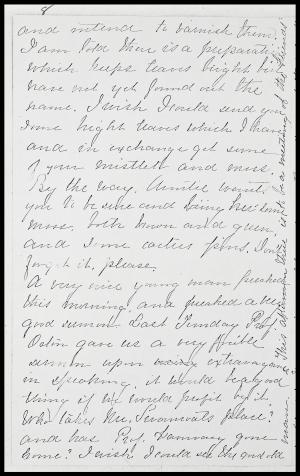 8
and intend to varnish them.
I am told there is a preparation
which keeps leaves bright but
have not yet found out the
name. I wish I could send you
some bright leaves which I have
and in exchange get some
of your mistletoe and moss.
By the way, Auntie wants
you to be sure and bring her some
moss, both brown and green,
and some cactus Don't
forget it, please.
A very nice young man preached
this morning, and preached a very
good sermon. Last Sunday Prof.
gave us a very
sermon upon using extravagance
in speaking, it would be a good
thing if we would profit by it.
Who takes Mr. place?
and has Prof. gone
home? I wish I could see the good old
This afternoon there is to be a meeting of the